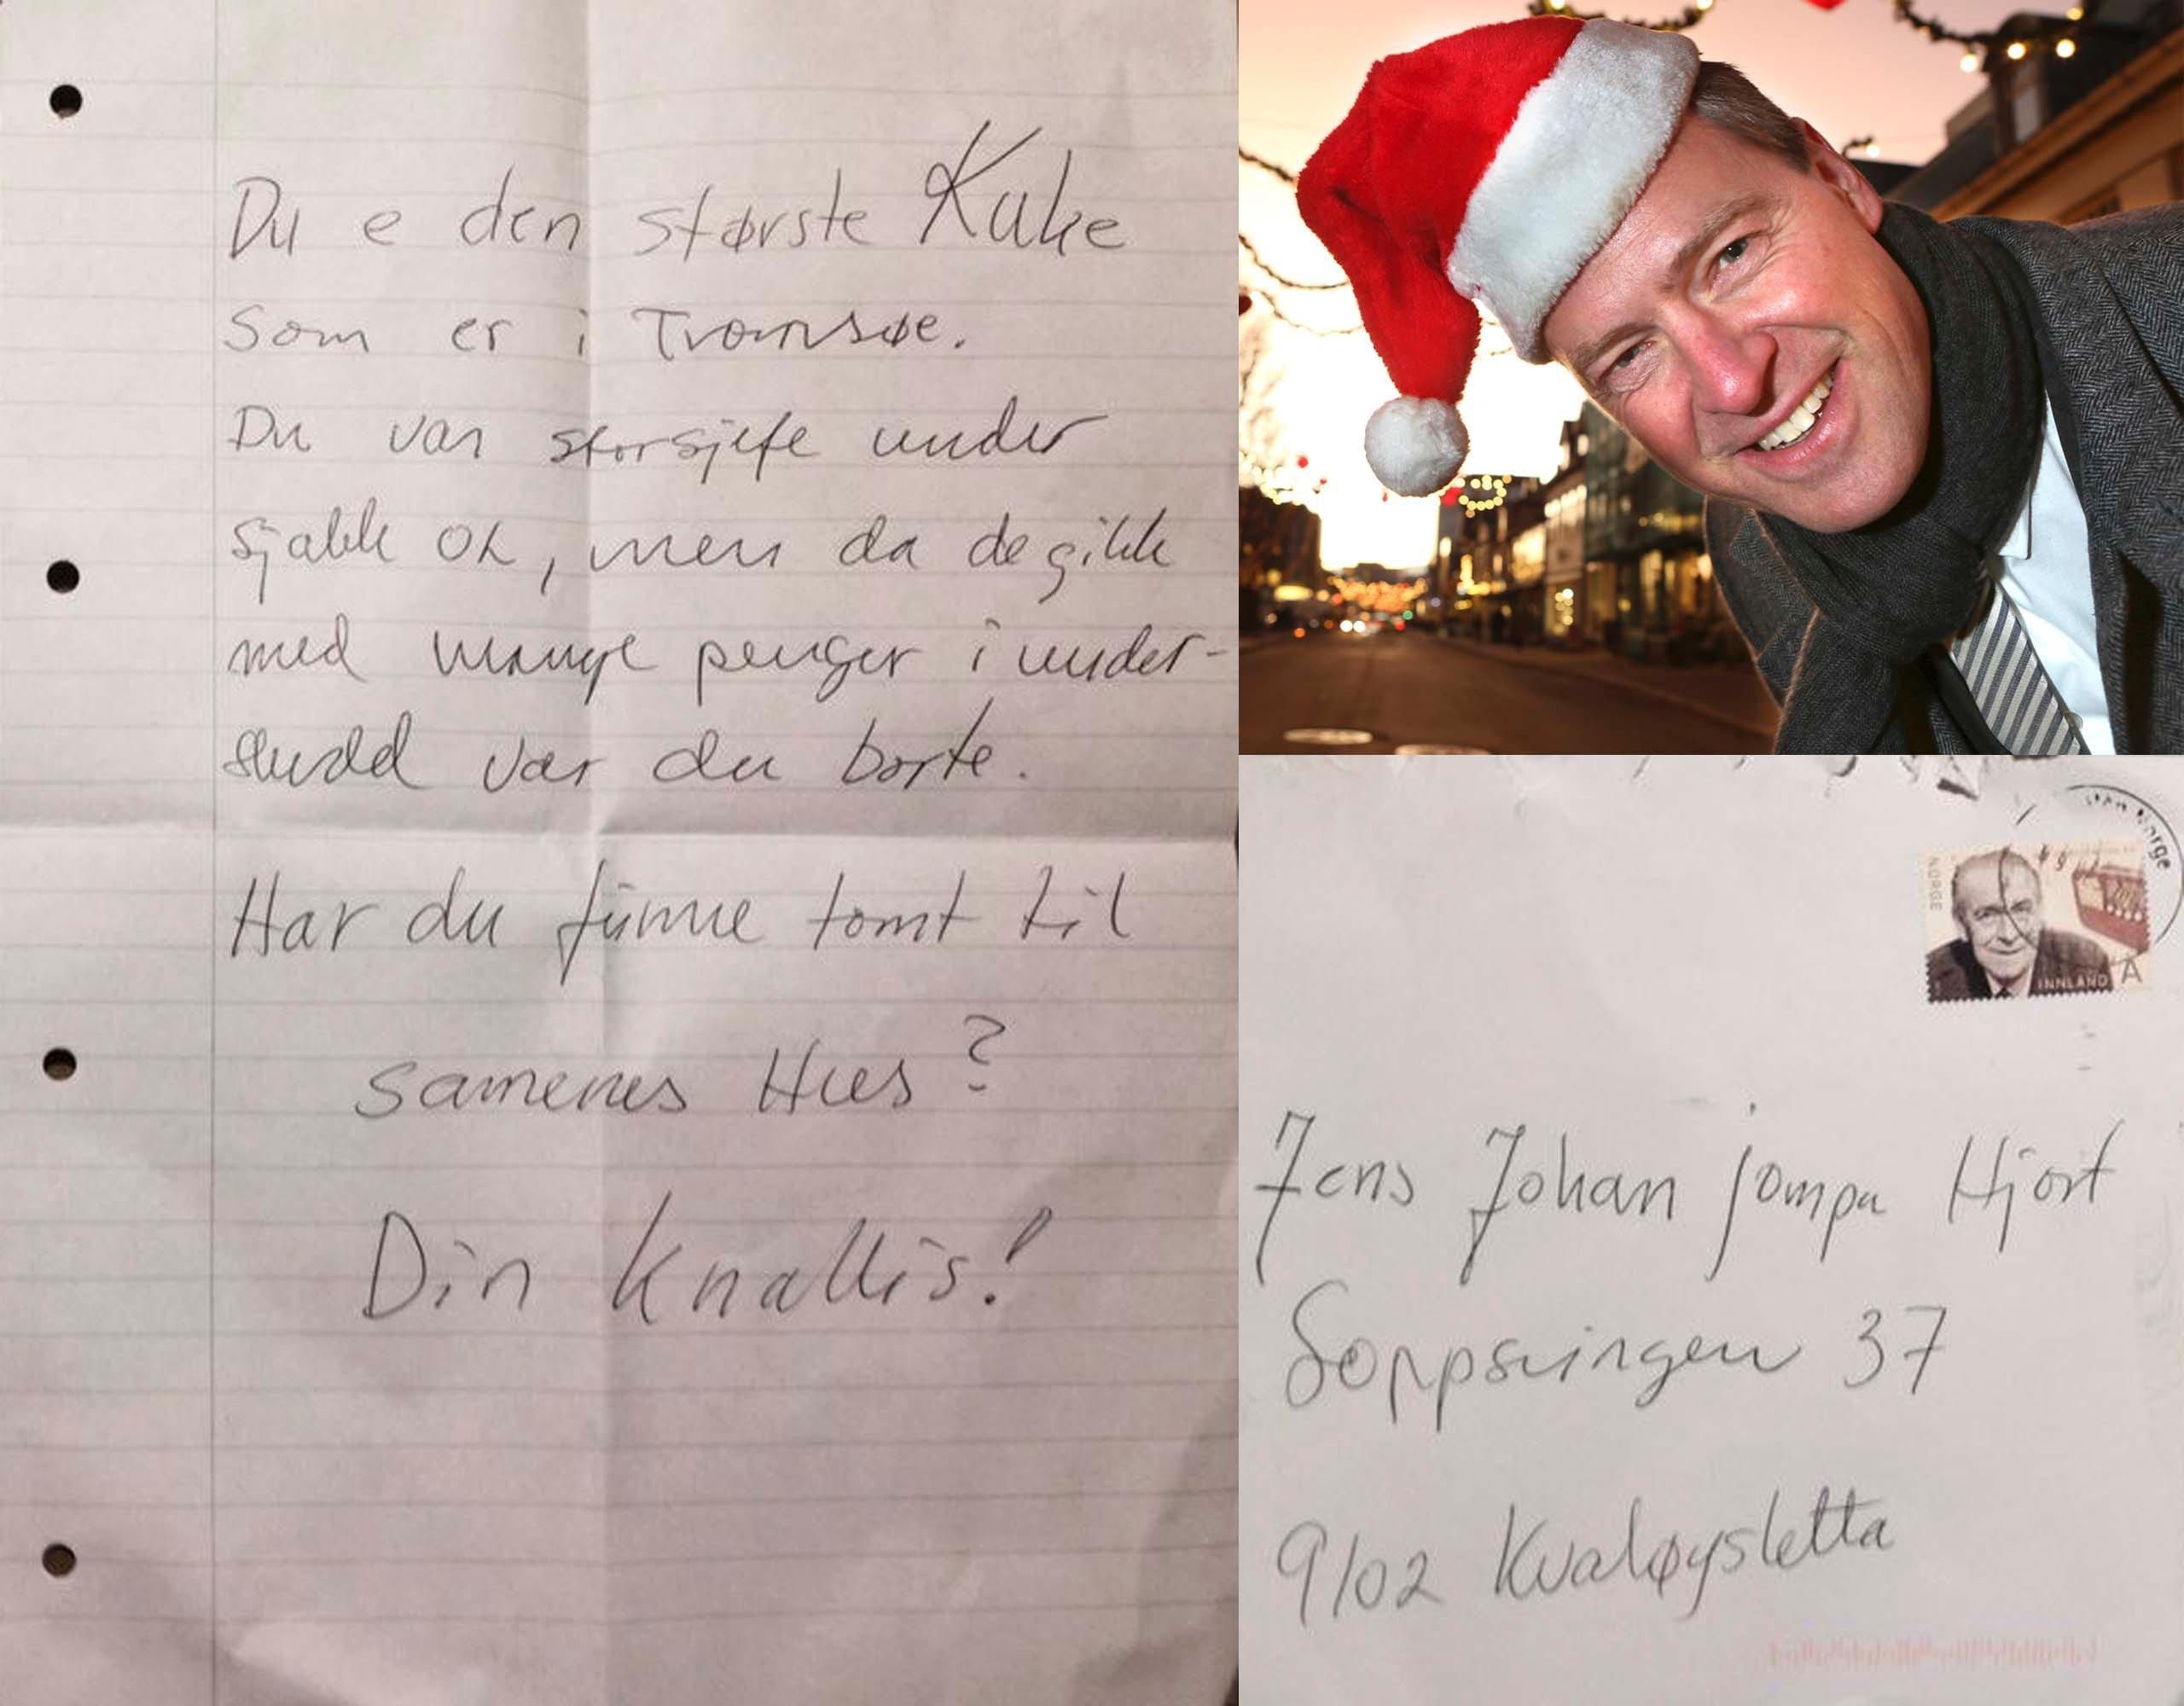 Du e den største Kake
som er i Tromsøe.
Du var storsjefe under
sjakk OL, men da de gikk
med mange penger i under-
skudd var du borte.
Har du funne tomt til
samenes Hus?
Din Knallis!
Norge
NORGE
INNLAND A
Jens Johan jompa Hjort
Soppsvingen 37
9102 Kvaløysletta